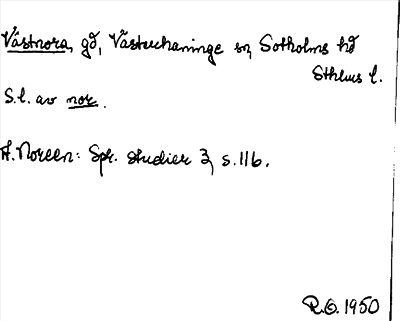 Västnora, gd, Västerhaninge sn, Sotholms hd
Sthlms l.
S.l. av nor.
A. Noreen: Spr. studier 3, s. 116.
R.O. 1950